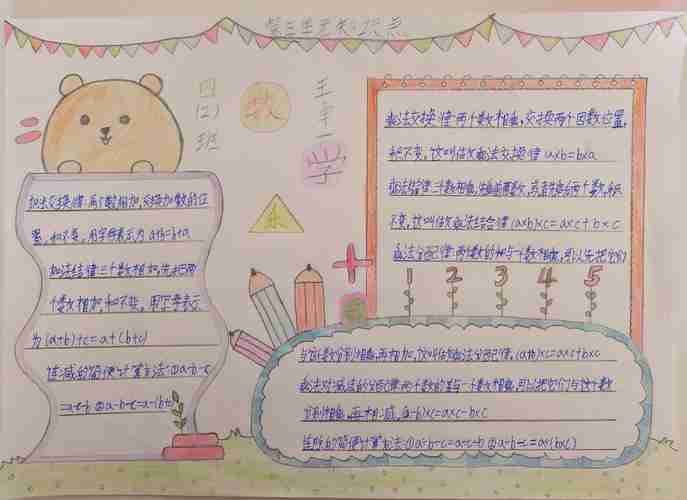 第三单元知识点
四(2)班
数
学
加法交换律:两个数相加,交换加数的位
置,和不变。用字母表示为a+b=b+a
加法结合律:三个数相加,先把前两
个数相加,和不变。用字母表示
为(a+b)+c=a+(b+c)
连减的简便计算方法:①a-b-c
=a-c-b ②a-b-c=a-(b+c)
乘法交换律:两个数相乘,交换两个因数位置,
积不变,这叫做乘法交换律(a×b=b×a
乘法结合律:三个数相乘,先乘前两个数,或者先乘后两个数,积
不变,这叫做乘法结合律(a×b)×c=a×c+b×c
乘法分配律:两个数的和与一个数相乘,可以先把它们
1 2 3 4 5
与这个数分别相乘,再相加,这叫做乘法分配律,(a+b)×c=a×c+b×c
乘法对减法的分配律:两个数的差与一个数相乘,可以把它们与这个数
分别相乘,再相减,(a-b)×c=a×c-b×c
连除的简便计算方法:①a÷b÷c=a÷c÷b ②a÷b÷c=a÷(b×c)